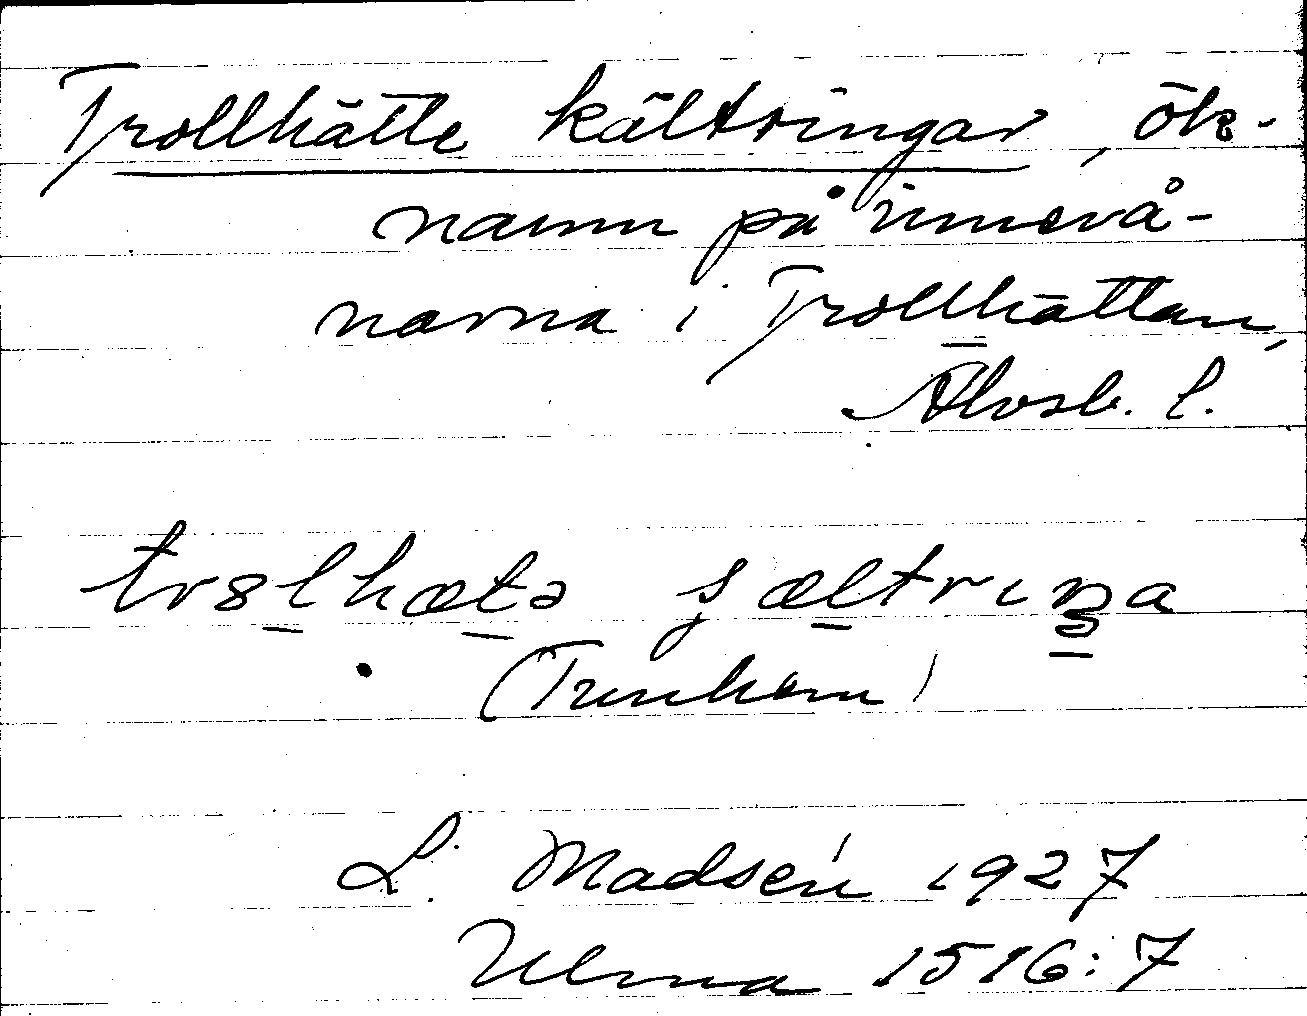 Trollhätte kältringar, ök-
namn på innevå-
narna i Trollhättan,
Älvsb. l.
trolhætə sæltrıŋa
(Trunhem)
L. Madsén 1927
Ulma 1516:7